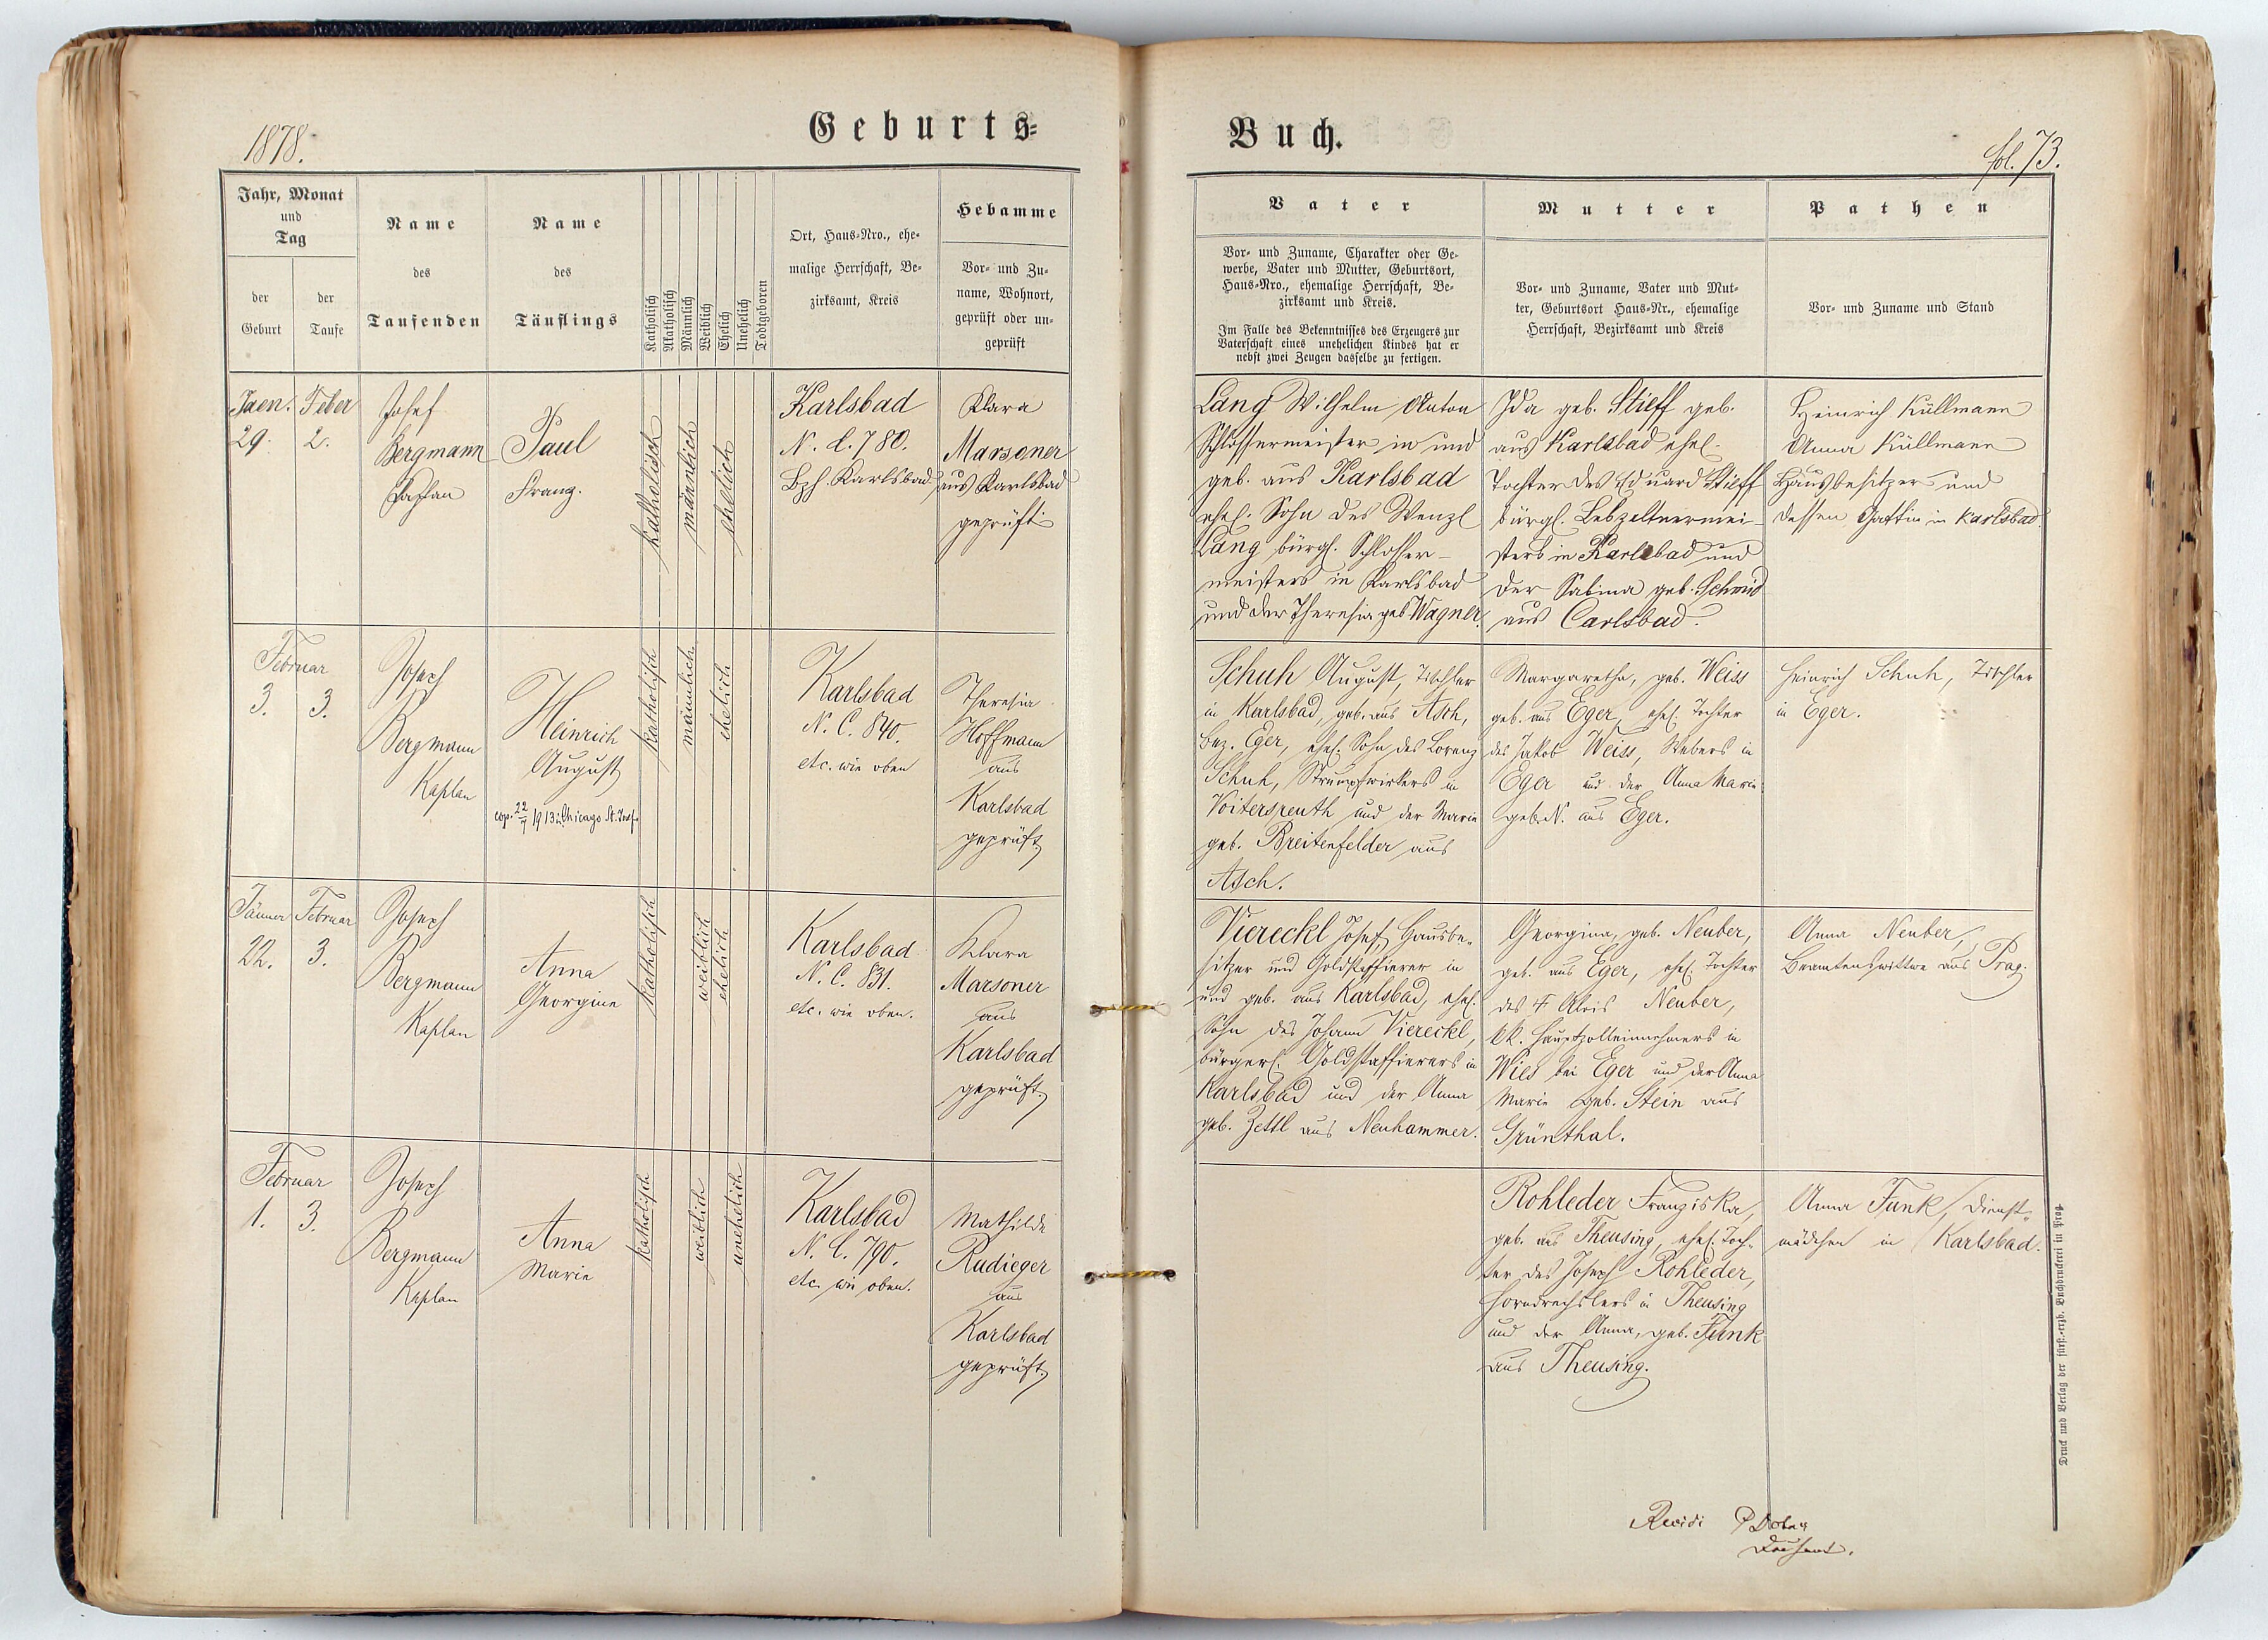 1878.
Geburts-
Buch.
fol. 73.
Jahr, Monat
und
Tag
der
Geburt
der
Taufe
Name
des
Taufenden
Name
des
Täuflings
Katholisch
Akatholisch
Männlich
Weiblich
Ehelich
Unehelich
Todtgeboren
Ort, Haus-Nro., ehe-
malige Herrschaft, Be-
zirksamt, Kreis
Hebamme
Vor- und Zu-
name, Wohnort,
geprüft oder un-
geprüft
Vater
Vor- und Zuname, Charakter oder Ge-
werbe, Vater und Mutter, Geburtsort,
Haus-Nro., ehemalige Herrschaft, Be-
zirksamt und Kreis.
Im Falle des Bekenntnisses des Erzeugers zur
Vaterschaft eines unehelichen Kindes hat er
nebst zwei Zeugen dasselbe zu fertigen.
Mutter
Vor- und Zuname, Vater und Mut-
ter, Geburtsort Haus-Nr., ehemalige
Herrschaft, Bezirksamt und Kreis
Pathen
Vor- und Zuname und Stand
Jaen.
29.
Feber
2.
Josef
Bergmann
Caplan
Paul
Franz.
katholisch
männlich
ehelich
Karlsbad
N. C. 780.
Bzh. Karlsbad
Klara
Marsoner
aus Karlsbad
geprüft
Lang Wilhelm Anton
Schlossermeister in und
geb. aus Karlsbad
ehel. Sohn des Wenzl
Lang bürgl. Schlosser-
meisters in Karlsbad
und der Theresia geb Wagner.
Ida geb. Stieff geb.
aus Karlsbad ehel.
Tochter des Eduard Stieff
bürgl. Lebzeltnermei-
sters in Karlsbad und
der Sabina geb. Schmid
aus Carlsbad.
Heinrich Küllmann
Anna Küllmann
Hausbesitzer und
dessen Gattin in Karlsbad
Februar
3. 3.
Joseph
Bergmann
Kaplan
Heinrich
August
cop. 22/7 1913 in Chicago St. Josef.
katholisch
männlich
ehelich
Karlsbad
N. C. 840.
etc. wie oben
Theresia
Hoffmann
aus
Karlsbad
geprüft
Schuh August, Tischler
in Karlsbad, geb. aus Asch,
Bez. Eger, ehel. Sohn des Lorenz
Schuh, Strumpfwirkers in
Voitersreuth und der Marie
geb. Breitenfelder aus
Asch.
Margaretha, geb. Weiss
geb. aus Eger, ehel. Tochter
des Jakob Weiss, Webers in
Eger und der Anna Marie
geb. N. aus Eger.
Heinrich Schuh, Tischler
in Eger.
Jänner
22.
Februar
3.
Joseph
Bergmann
Kaplan
Anna
Georgine
katholisch
weiblich
ehelich
Karlsbad
N. C. 831.
etc. wie oben.
Klara
Marsoner
aus
Karlsbad
geprüft
Viereckl Josef, Hausbe-
sitzer und Goldstaffierer in
und geb. aus Karlsbad, ehel.
Sohn des Johann Viereckl,
bürgerl. Goldstaffierers in
Karlsbad und der Anna
geb. Zettl aus Neuhammer.
Georgina, geb. Neuber,
geb. aus Eger, ehel. Tochter
des † Alois Neuber,
kk. Hauptzolleinnehmers in
Wies bei Eger und der Anna
Marie geb. Stein aus
Grünthal.
Anna Neuber,
Beamtenswittwe aus Prag.
Februar
1. 3.
Joseph
Bergmann
Kaplan
Anna
Marie
katholisch
weiblich
unehelich
Karlsbad
N. C. 790.
etc. wie oben.
Mathilde
Rudieger
aus
Karlsbad
geprüft
Rohleder Franziska,
geb. aus Theusing, ehel. Toch-
ter des Joseph Rohleder,
Horndrechslers in Theusing
und der Anna, geb. Funk
aus Theusing.
Anna Funk, Dienst-
mädchen in Karlsbad.
Druck und Verlag der fürst.-erzb. Buchdruckerei in Prag.
Revidi
Dechant.